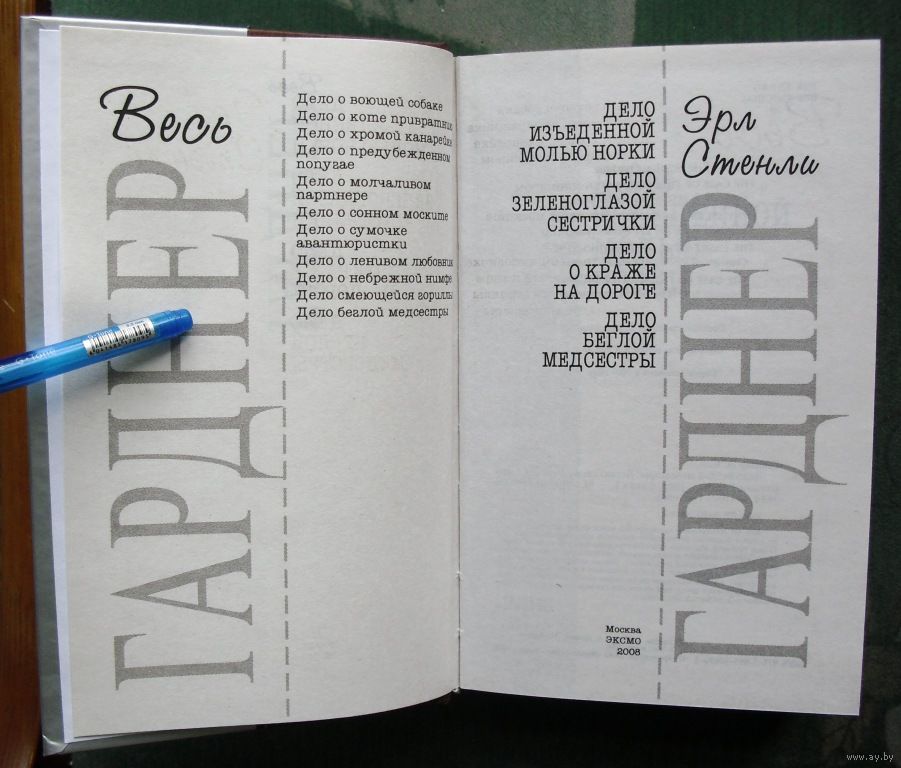 Весь
ГАРДНЕР
Дело о воющей собаке
Дело о коте привратника
Дело о хромой канарейке
Дело о предубежденном
попугае
Дело о молчаливом
партнере
Дело о сонном моските
Дело о сумочке
авантюристки
Дело о ленивом любовнике
Дело о небрежной нимфе
Дело смеющейся гориллы
Дело беглой медсестры
ДЕЛО
ИЗЪЕДЕННОЙ
МОЛЬЮ НОРКИ
ДЕЛО
ЗЕЛЕНОГЛАЗОЙ
СЕСТРИЧКИ
ДЕЛО
О КРАЖЕ
НА ДОРОГЕ
ДЕЛО
БЕГЛОЙ
МЕДСЕСТРЫ
Эрл
Стенли
ГАРДНЕР
Москва
ЭКСМО
2008
www.ay.by